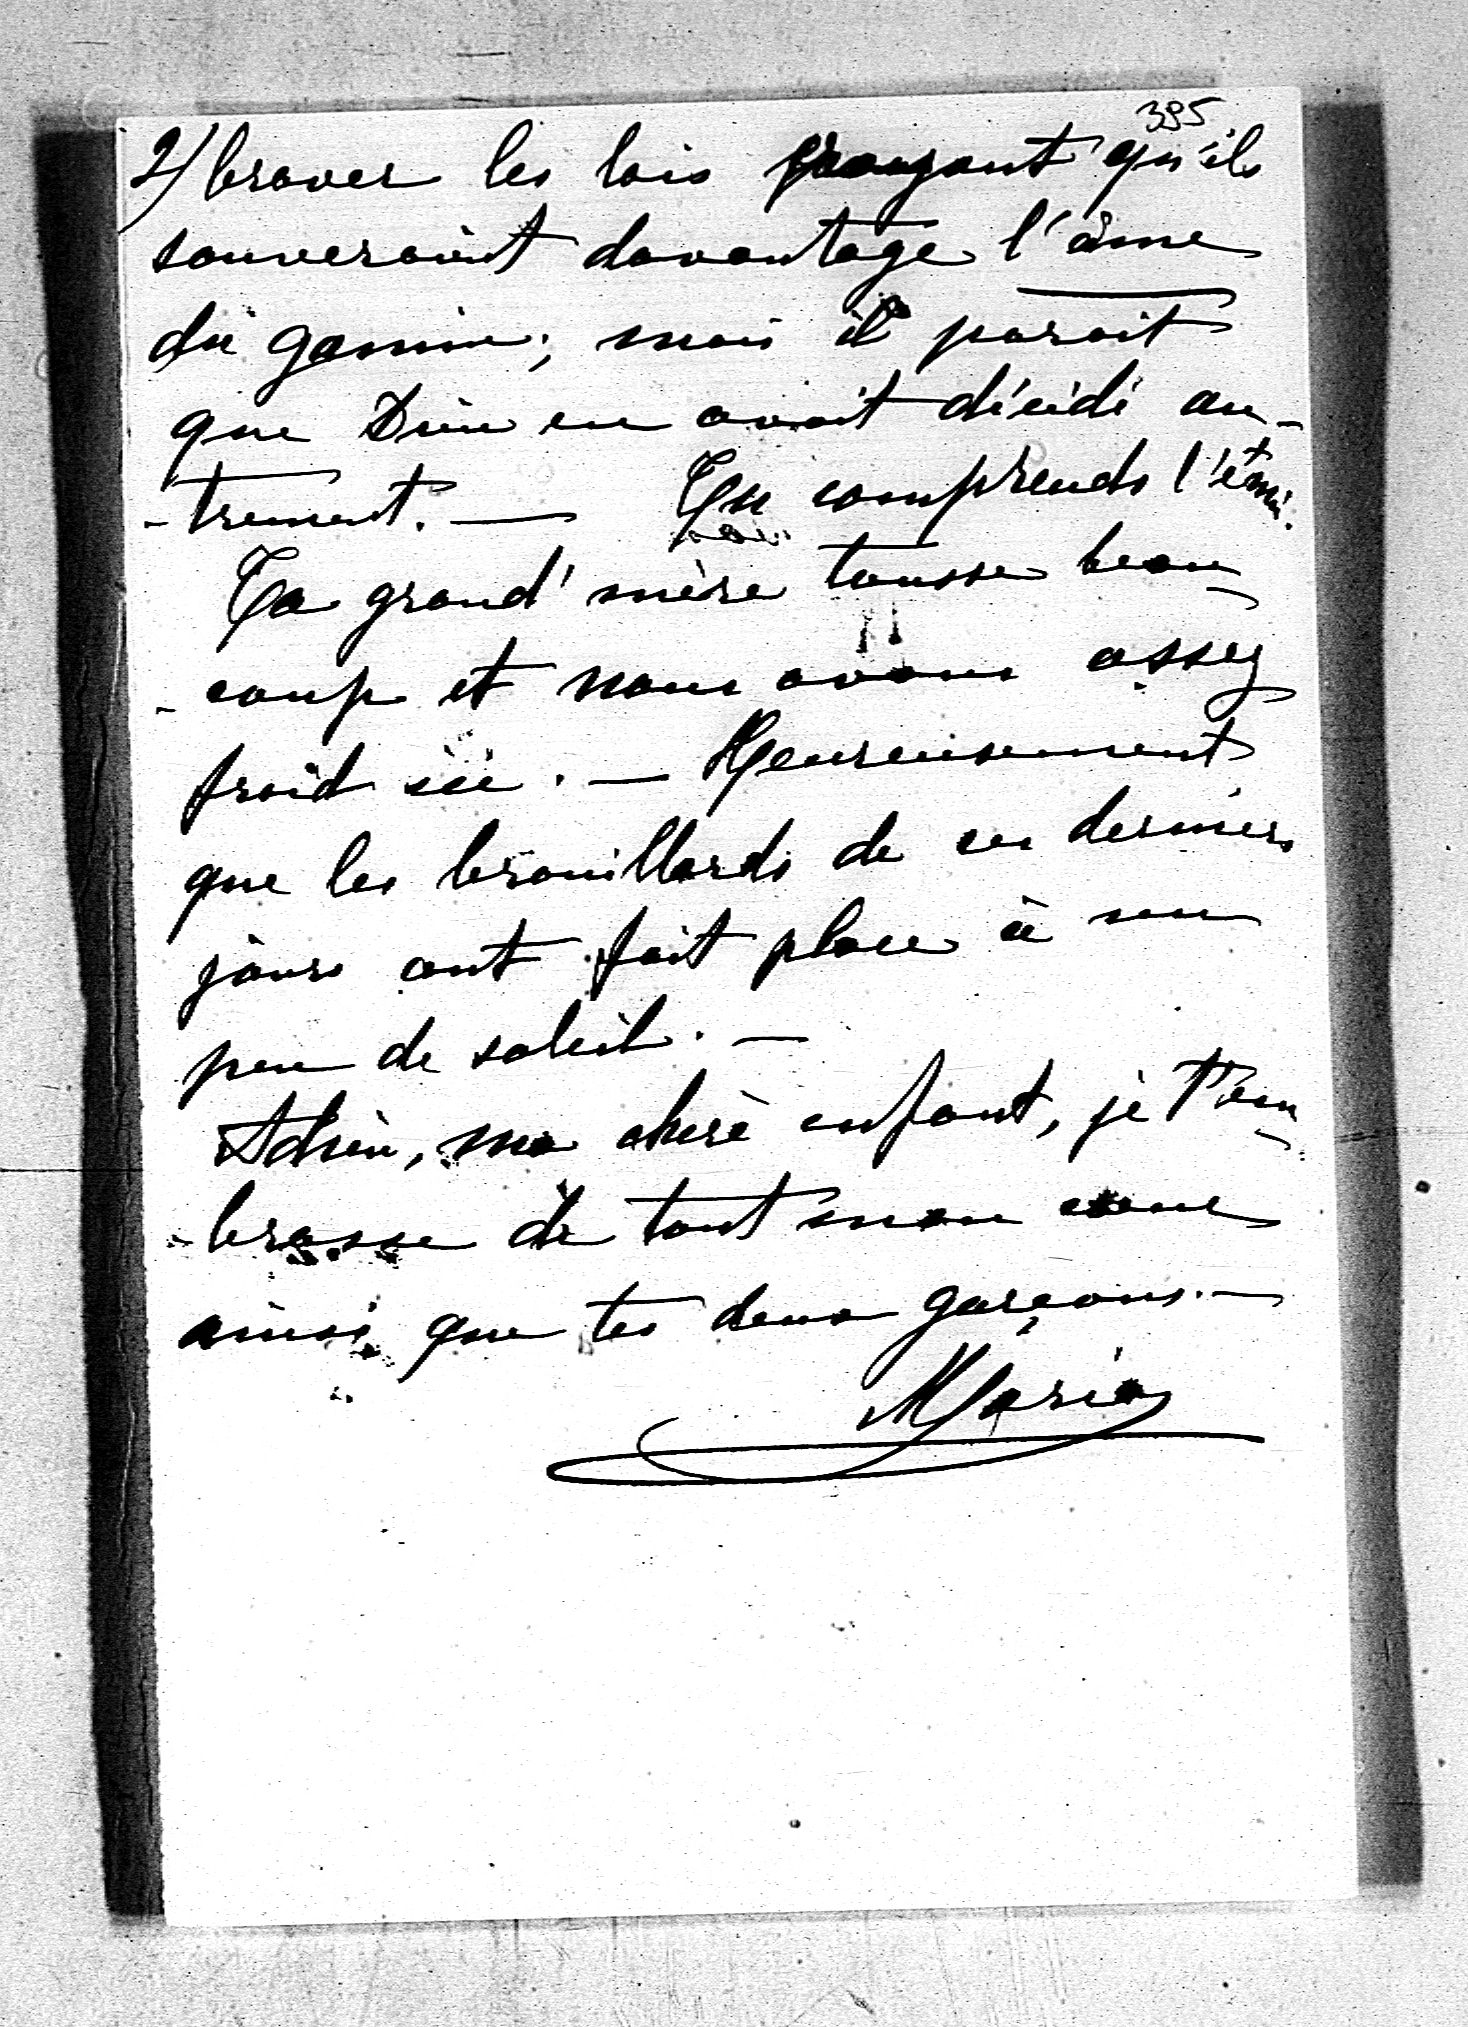 395
2/ braver les lois croyant qu'ils
sauveraient davantage l'âme
du gamin; mais il parait
que Dieu en avait décidé au-
-trement. — Tu comprends l'
Ta grand'mère tousse beau-
-coup et nous avons assez
froid ici. — Heureusement
que les brouillards de ces derniers
jours ont fait place à un
peu de soleil. —
Adieu, ma chère enfant, je t'em-
-brasse de tout mon cœur
ainsi que tes deux garçons. —
Maria